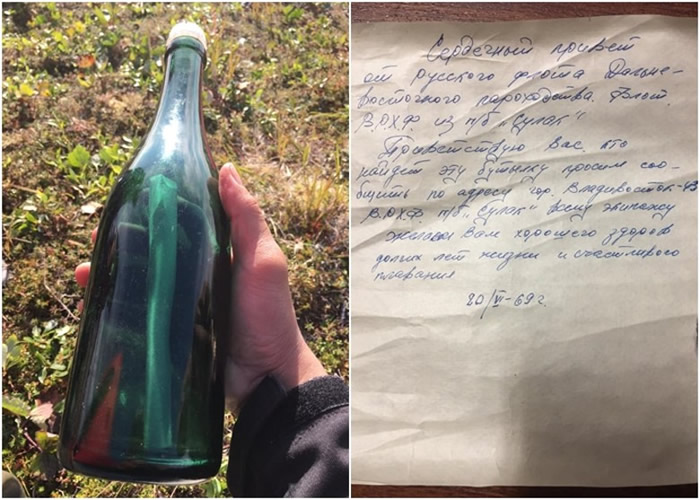 Сердечный привет
от русского флота Дальне-
восточного пароходства. Флот.
В.О.Х.Ф. из п/б „Сулак“
Приветствую Вас, кто
найдет эту бутылку просим соо-
бщить по адресу гор. Владивосток-43
В.О.Х.Ф. п/б „Сулак“ всему экипажу
желаем Вам хорошего здоров
долгих лет жизни и счастливого
плавания
20/VI-69 г.